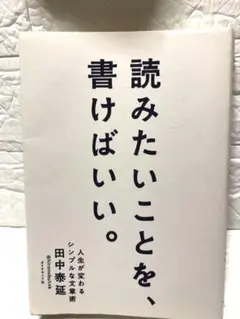 読みたいことを、
書けばいい。
人生が変わる
シンプルな文章術
田中泰延
ダイヤモンド社